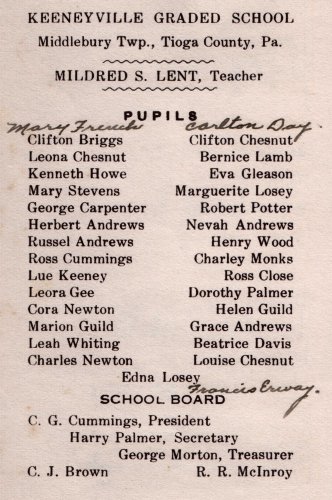 KEENEYVILLE GRADED SCHOOL
Middlebury Twp., Tioga County, Pa.
MILDRED S. LENT, Teacher
PUPILS
Mary French Carlton Day.
Clifton Briggs Clifton Chesnut
Leona Chesnut Bernice Lamb
Kenneth Howe Eva Gleason
Mary Stevens Marguerite Losey
George Carpenter Robert Potter
Herbert Andrews Nevah Andrews
Russel Andrews Henry Wood
Ross Cummings Charley Monks
Lue Keeney Ross Close
Leora Gee Dorothy Palmer
Cora Newton Helen Guild
Marion Guild Grace Andrews
Leah Whiting Beatrice Davis
Charles Newton Louise Chesnut
Edna Losey
Francis Erway.
SCHOOL BOARD
C. G. Cummings, President
Harry Palmer, Secretary
George Morton, Treasurer
C. J. Brown R. R. McInroy